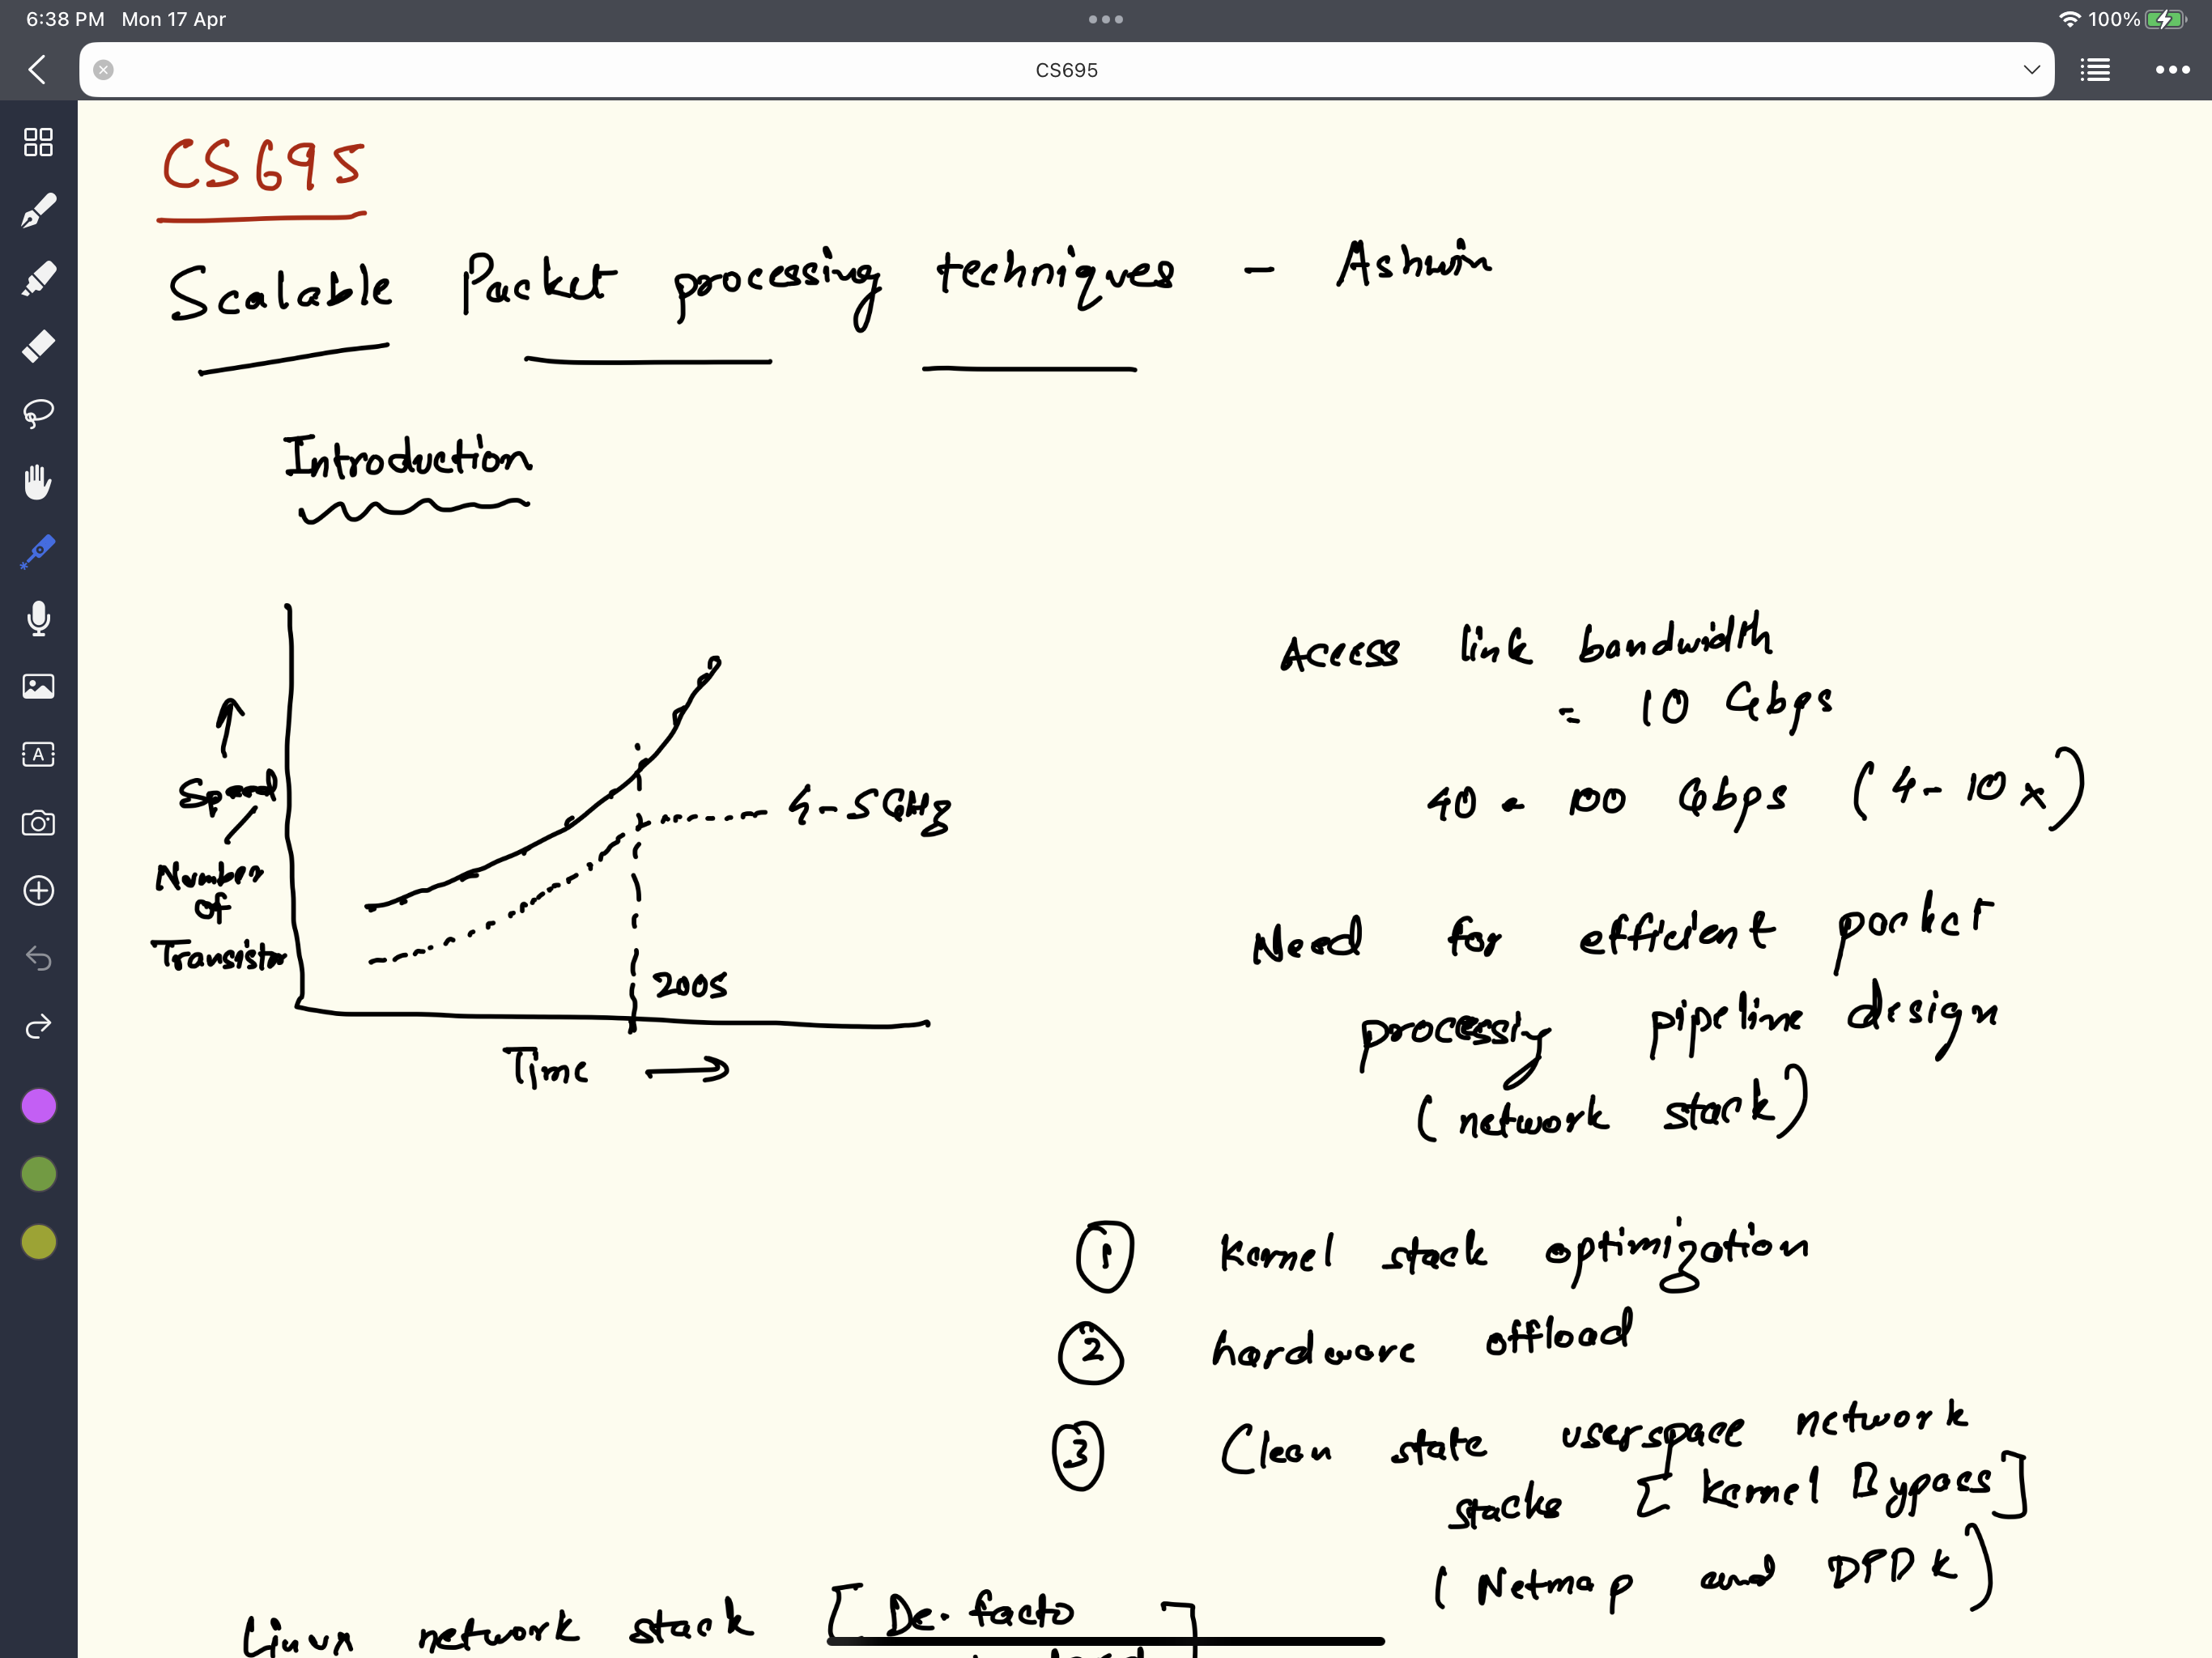 6:38 PM Mon 17 Apr
100%
CS695
CS695
Scalable Packet processing techniques - Ashwin
Introduction
Speed /
Number
of
Transistor
4-5GHz
2005
Time
Access link bandwidth
= 10 Gbps
40 - 100 Gbps (4-10x)
Need for efficient packet
processing pipeline design
(network stack)
1 Kernel stack optimization
2 hardware offload
3 Clean state userspace network
stacks [Kernel Bypass]
(Netmap and DPDK)
Linux network stack [De-facto